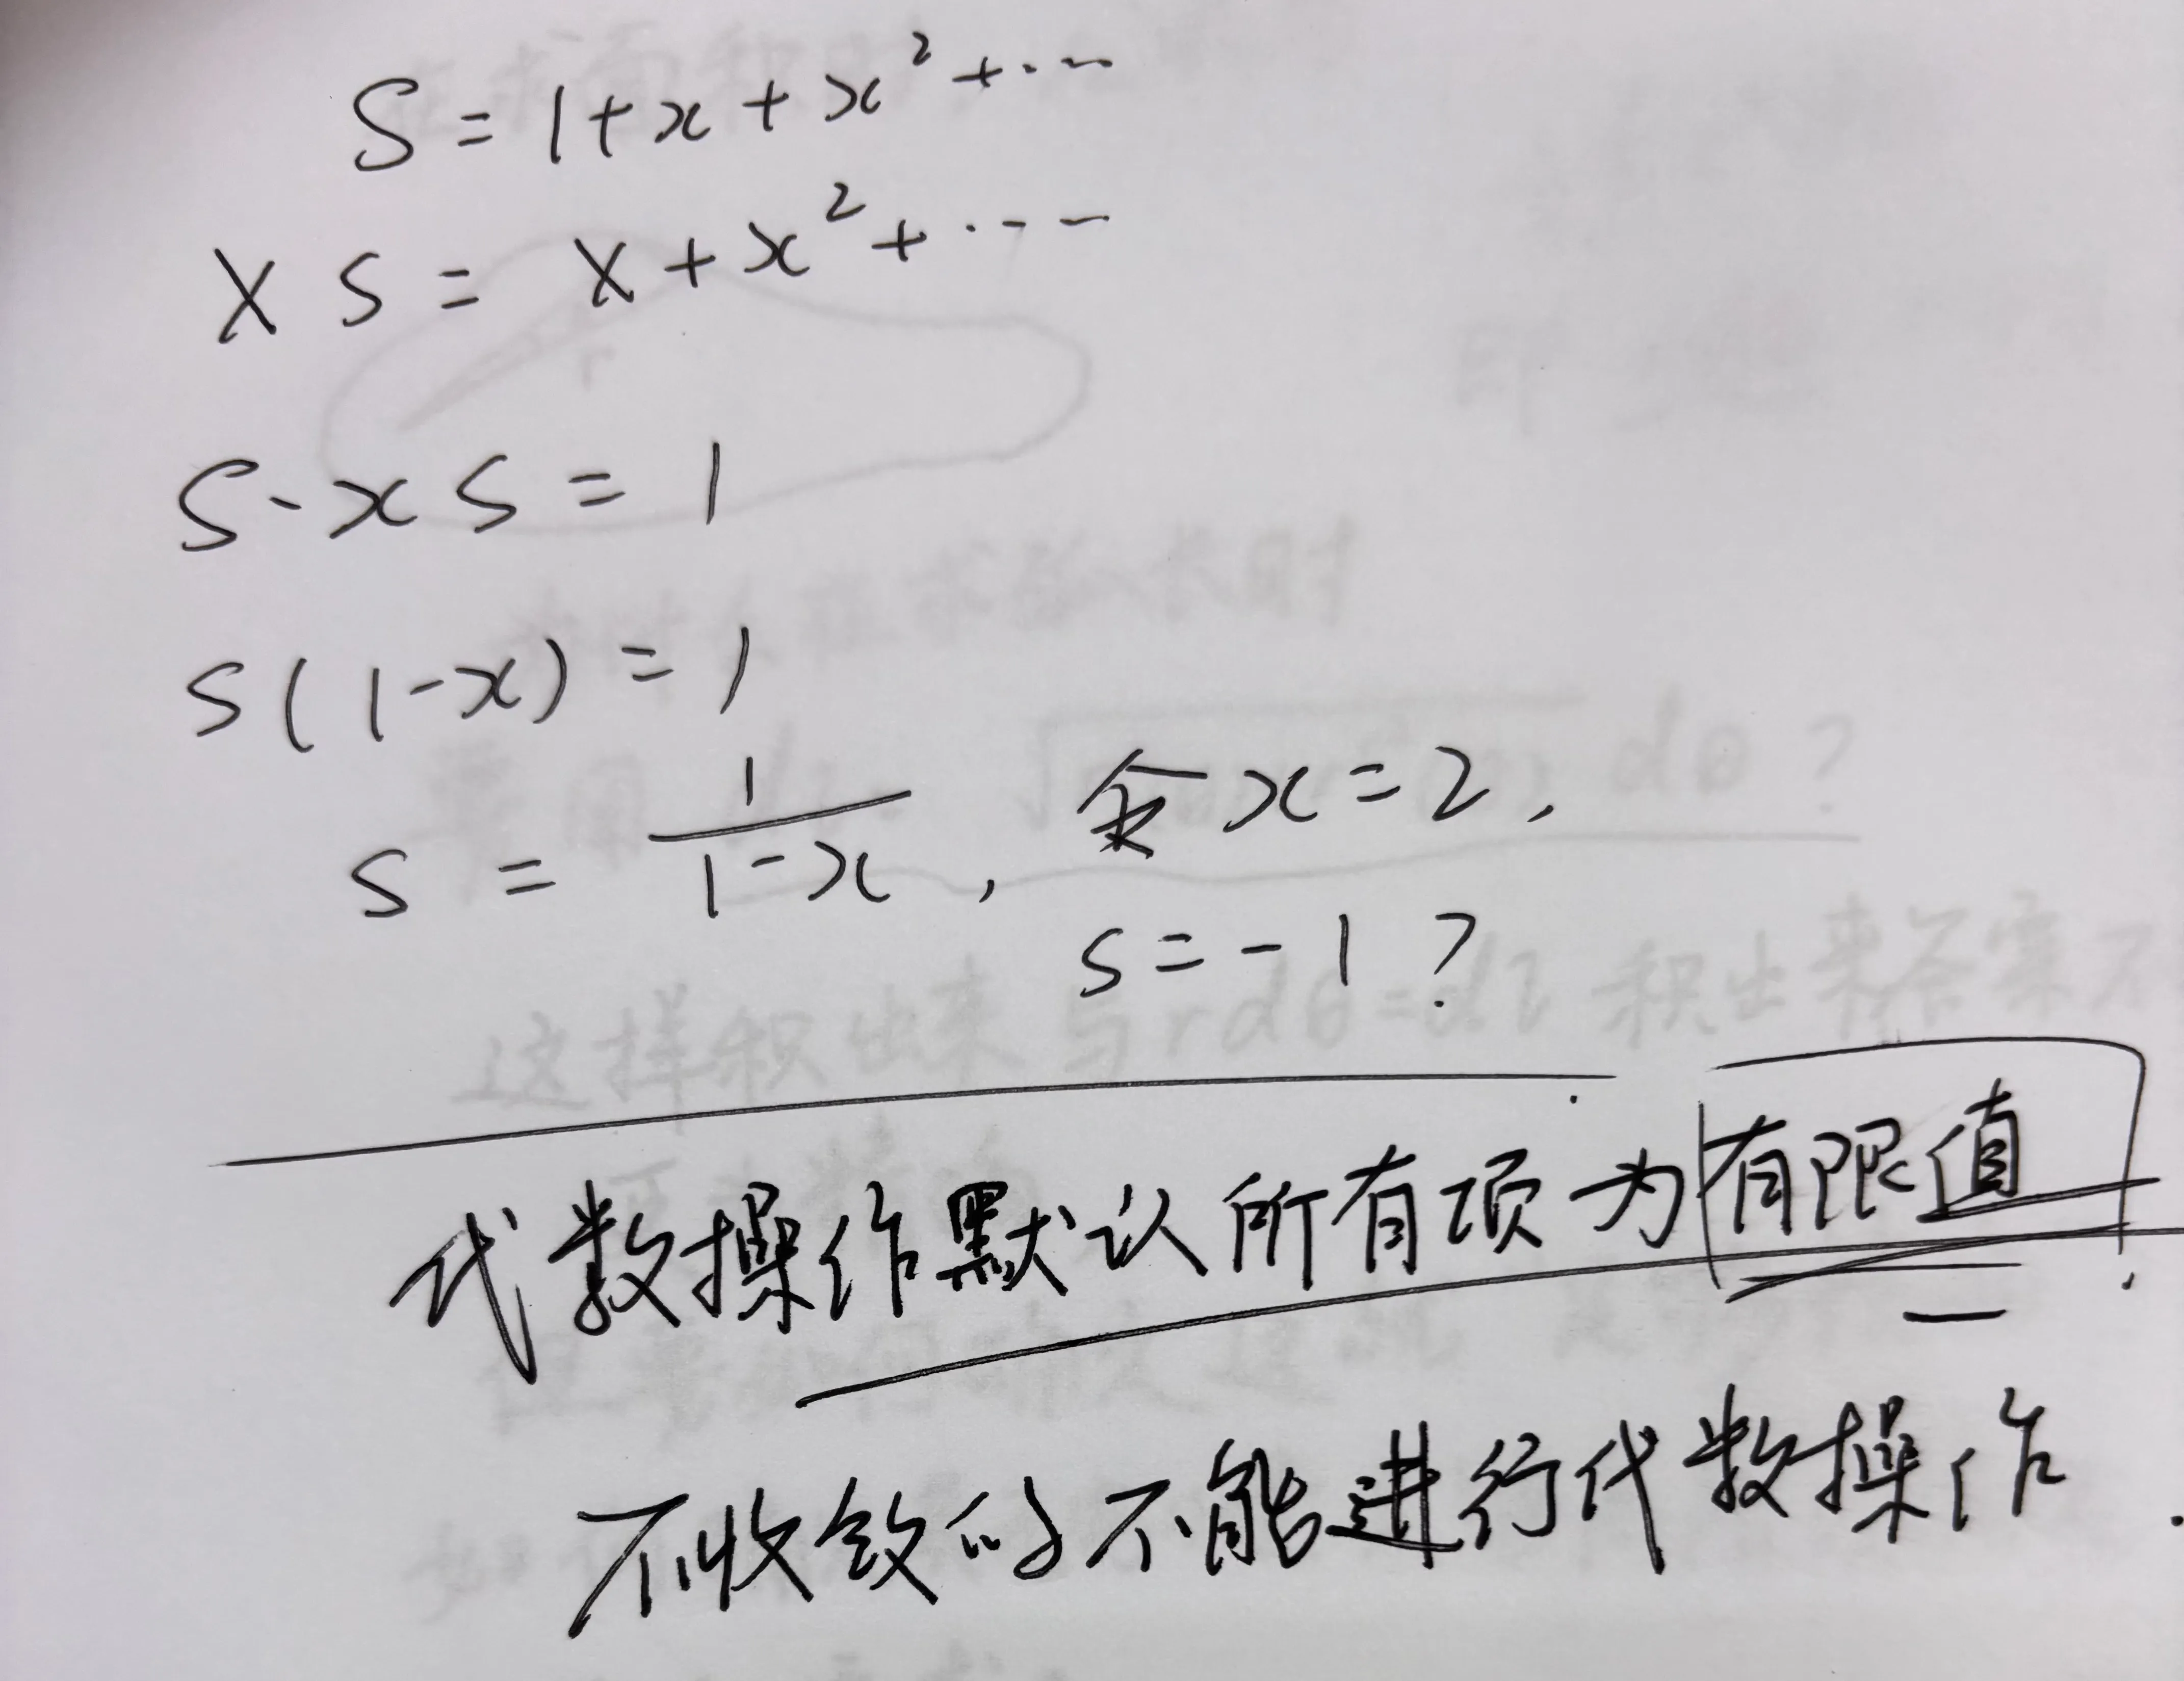 S = 1 + x + x² + ⋯
x S = x + x² + ⋯
S - x S = 1
S(1-x) = 1
S = 1/(1-x), 令 x = 2,
S = -1 ?
代数操作默认所有项为有限值.
不收敛的不能进行代数操作.